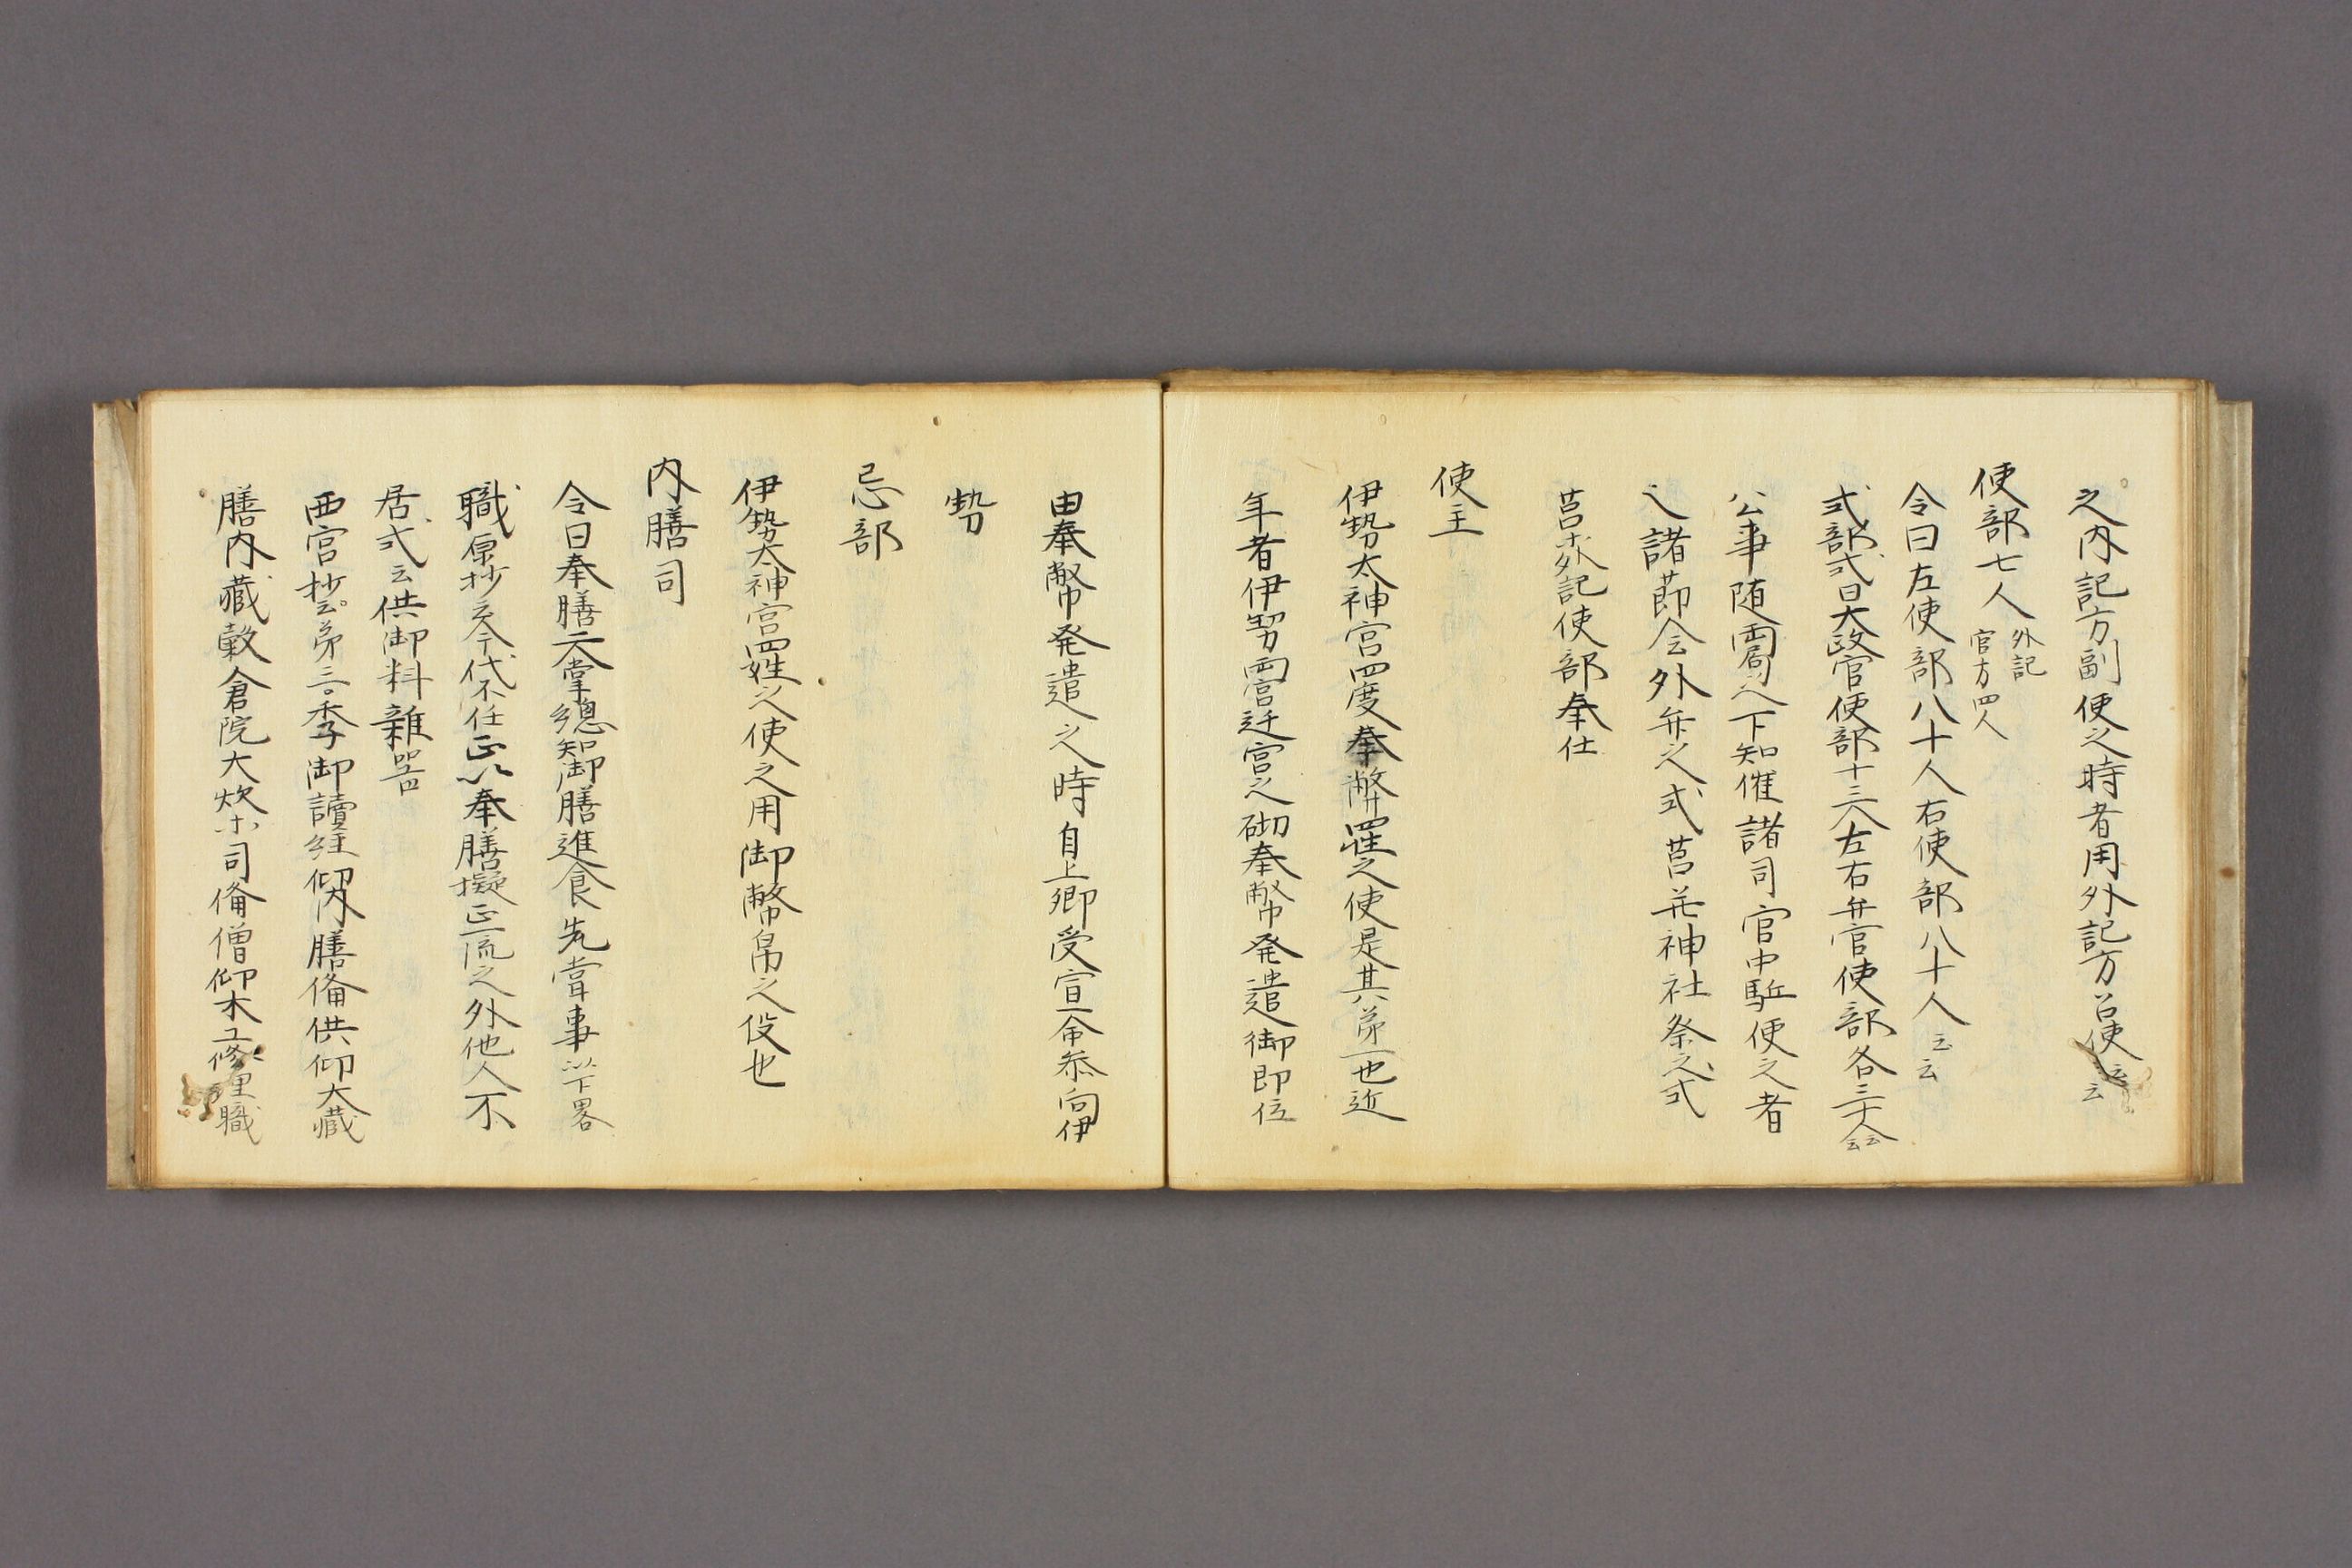 之内記方副使之時者用外記方召使云云
使部七人 外記 官方四人
令曰左使部八十人右使部八十人云云
式部式曰大政官使部十三人左右弁官使部各三十人云云
公事随両局之下知催諸司官中駈使之者
之諸節会外弁之式筥并神社祭之式
筥外記使部奉仕
使主
伊勢太神宮四度奉幣四姓之使是其第一也近
年者伊勢両宮迁宮之砌奉幣発遣御即位
由奉幣発遣之時自上卿受宣命参向伊
勢
忌部
伊勢太神宮四姓之使之用御幣帛之役也
内膳司
令曰奉膳二人掌總知御膳進食先嘗事以下畧
職原抄云今代不任正以奉膳擬正一流之外他人不
居式云供御料雜器
西宮抄云第三季御讀経仰内膳俻供仰大藏
膳内藏穀倉院大炊司俻僧仰木工修理職